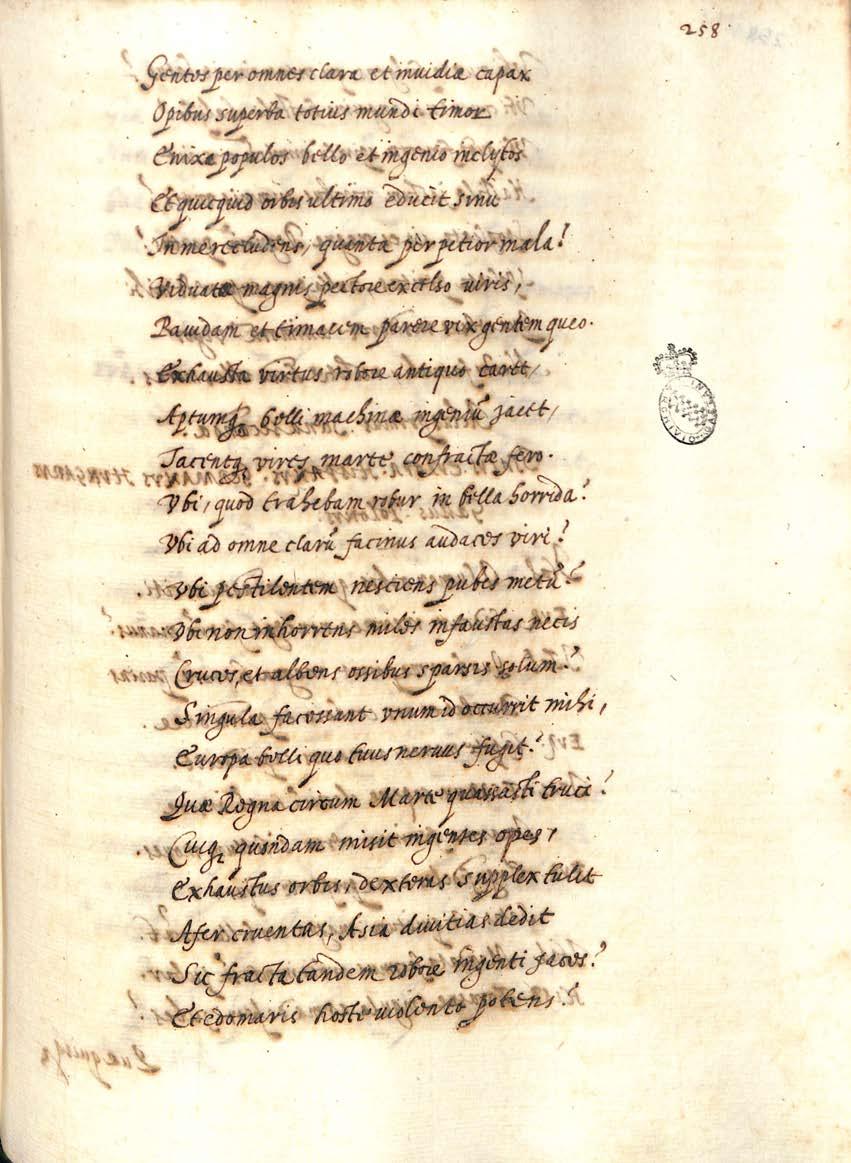 258
Gentes per omnes clara et inuidiæ capax
Opibus superba totius mundi timor
Enixa populos bello et ingenio inclytos
Et quicquid orbis ultimo educit sinu
In me recludens, quanta perpetior mala!
Viduata magnis pectore excelso uiris,
Pauidam et timacem parere vix gentem queo.
Exhausta virtus robore antiquo caret,
Aptumq; belli machinæ ingeniũ jacet,
Jacentq; vires marte confractæ fero.
Vbi, quod trahebam robur in bella horrida?
Vbi ad omne clarũ facinus audaces viri?
Vbi pestilentem nesciens pubes metũ?
Vbi non inhorrens miles infaustas necis
Cruces, et albens ossibus sparsis solum?
Singula facessant vnum id occurrit mihi,
Europa belli quo tuus neruus fugit?
Quæ Regna circum Marte quassasti truci?
Cuiq; quondam misit ingentes opes,
Exhaustus orbis, dexteras supplex tulit
Afer cruentas, Asia diuitias dedit
Sic fracta tandem robore ingenti jaces?
Et edomaris hoste uiolento potens?